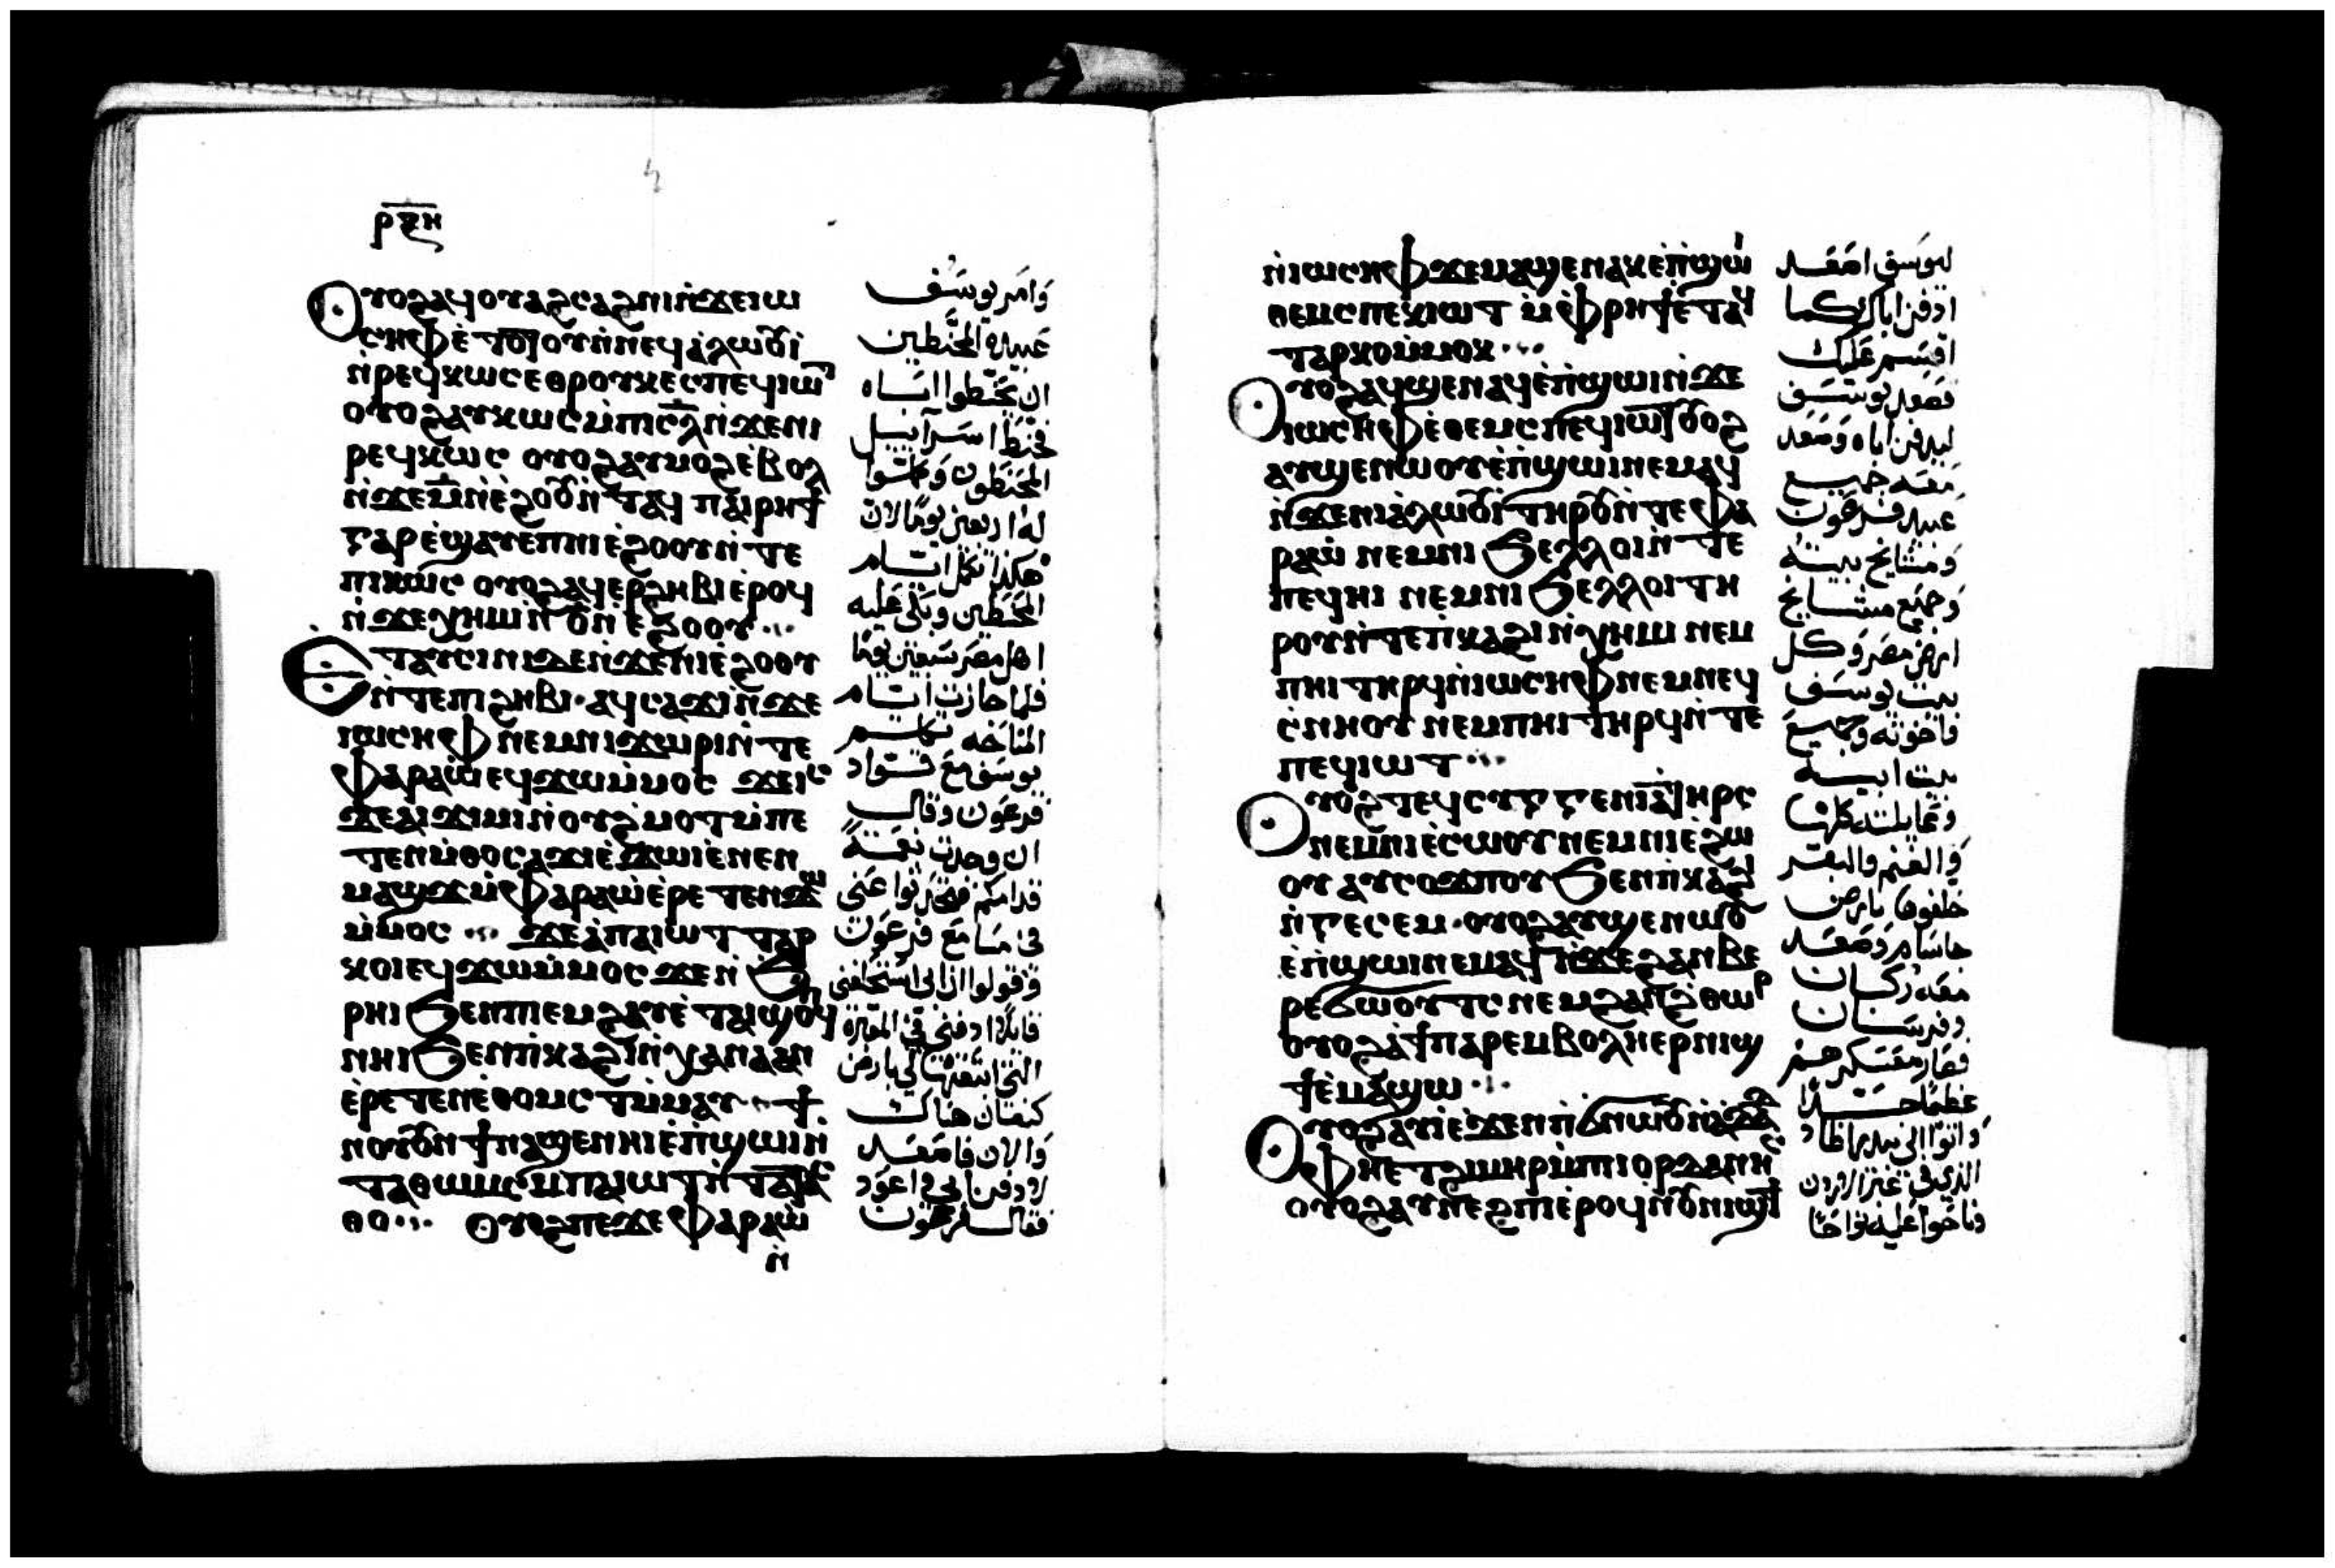 ⲣⲝⲏ
Ⲟⲩⲟϩ ⲁϥⲟⲩⲁϩⲥⲁϩⲛⲓ ⲛ̀ϫⲉ ⲓⲱ
ⲥⲏⲫ ⲉ̀ⲧⲟⲧⲟⲩ ⲛ̀ⲛⲉϥⲁ̀ⲗⲱⲟⲩⲓ̀
ⲛ̀ⲣⲉϥⲕⲱⲥ ⲉⲑⲣⲟⲩⲕⲉⲥ ⲡⲉϥⲓⲱⲧ
ⲟⲩⲟϩ ⲁⲩⲕⲱⲥ ⲙ̀ⲡⲓⲥ̅ⲗ̅ ⲛ̀ϫⲉ ⲛⲓ
ⲣⲉϥⲕⲱⲥ ⲟⲩⲟϩ ⲁⲩⲙⲟϩ ⲉ̀ⲃⲟⲗ
ⲛ̀ϫⲉ ⲙ̅ ⲛ̀ⲉ̀ϩⲟⲟⲩ ⲛ̀ⲧⲁϥ ⲡⲁⲓⲣⲏϯ
ⲅⲁⲣ ⲉ̀ϣⲁⲩⲉⲡ ⲛⲓⲉ̀ϩⲟⲟⲩ ⲛ̀ⲧⲉ
ⲡⲓⲕⲱⲥ ⲟⲩⲟϩ ⲁϥⲉⲣϩⲏⲃⲓ ⲉ̀ⲣⲟϥ
ⲛ̀ϫⲉ ⲭⲏⲙⲓ ⲛ̀ ⲟ̅ ⲛ̀ⲉ̀ϩⲟⲟⲩ
Ⲉⲧⲁⲩⲥⲓⲛⲓ ϫⲉ ⲛ̀ϫⲉ ⲛⲓⲉ̀ϩⲟⲟⲩ
ⲛ̀ⲧⲉ ⲡⲓϩⲏⲃⲓ· ⲁϥⲥⲁϫⲓ ⲛ̀ϫⲉ
ⲓⲱⲥⲏⲫ ⲛⲉⲙ ⲛⲓϫⲱⲣⲓ ⲛ̀ⲧⲉ
ⲫⲁⲣⲁⲱ̀ ⲉϥϫⲱ ⲙ̀ⲙⲟⲥ ϫⲉ ⲓⲥ
ϫⲉ ⲁⲓϫⲓⲙⲓ ⲛ̀ⲟⲩϩ̀ⲙⲟⲧ ⲙ̀ⲡⲉ
ⲧⲉⲛⲙ̀ⲑⲟ ⲥⲁϫⲓ ⲉ̀ϫⲱⲓ ⲉ̀ⲛⲉⲛ
ⲙⲁϣϫ ⲙ̀ⲫⲁⲣⲁⲱ̀ ⲉ̀ⲣⲉⲧⲉⲛϫⲱ
ⲙ̀ⲙⲟⲥ ϫⲉ ⲁ̀ ⲡⲁⲓⲱⲧ ⲧⲁⲣ
ⲕⲟⲓ ⲉϥϫⲱ ⲙ̀ⲙⲟⲥ ϫⲉ ⲛ̀ϧ
ⲣⲏⲓ ϧⲉⲛ ⲡⲓⲙ̀ϩⲁⲩ ⲉ̀ⲧⲁⲓϣⲟϥ
ⲛⲏⲓ ϧⲉⲛ ⲡ̀ⲕⲁϩⲓ ⲛ̀ⲭⲁⲛⲁⲁⲛ
ⲉ̀ⲣⲉⲧⲉⲛⲉ̀ⲑⲟⲙⲥⲧ ⲙ̀ⲙⲁⲩ ϯ
ⲛⲟⲩ ⲟⲩⲛ ϯⲛⲁϣⲉⲛⲏⲓ ⲉ̀ⲡ̀ϣⲱⲓ ⲛ̀
ⲧⲁⲑⲱⲙⲥ ⲙ̀ⲡⲁⲓⲱⲧ ⲛ̀ⲧⲁⲧⲁⲥ
ⲑⲟ ⲟⲩⲟϩ ⲡⲉϫⲉ ⲫⲁⲣⲁⲱ̀
ⲛ̀
وامر يوسف
عبيده المحنطين
ان يحنطوا اباه
فحنط اسرآييل
المحنطون وكملوا
له اربعين يوما لان
هكذا تكمل ايام
المحنطين وبكى عليه
اهل مصر سبعين يوما
فلما جازت ايام
المناحه تكلم
يوسف مع قواد
فرعون وقال
ان وجدت نعمة
قدامكم فتخبروا عني
في مسامع فرعون
وقولوا ان ابي استحلفني
قايلا ادفني في المقبرة
التي انتقرتها لي بارض
كنعان هناك
والان فاصعد
لادفن ابي واعود
فقال فرعون
ⲛ̀ⲓⲱⲥⲏⲫ ϫⲉ ⲙⲁϣⲉⲛⲁⲕ ⲉ̀ⲡ̀ϣⲱⲓ
ⲑⲉⲙⲥ ⲡⲉⲕⲓⲱⲧ ⲙ̀ⲫ̀ⲣⲏϯ ⲉ̀ⲧⲁϥ
ⲧⲁⲣⲕⲟ ⲙ̀ⲙⲟⲕ
Ⲟⲩⲟϩ ⲁϥϣⲉⲛⲁϥ ⲉ̀ⲡ̀ϣⲱⲓ ⲛ̀ϫⲉ
ⲓⲱⲥⲏⲫ ⲉ̀ⲑⲉⲙⲥ ⲡⲉϥⲓⲱⲧ ⲟⲩⲟϩ
ⲁⲩϣⲉⲛⲱⲟⲩ ⲉ̀ⲡ̀ϣⲱⲓ ⲛⲉⲙⲁϥ
ⲛ̀ϫⲉ ⲛⲓⲁ̀ⲗⲱⲟⲩⲓ̀ ⲧⲏⲣⲟⲩ ⲛ̀ⲧⲉ ⲫⲁ
ⲣⲁⲱ̀ ⲛⲉⲙ ⲛⲓϧⲉⲗⲗⲟⲓ ⲛ̀ⲧⲉ
ⲡⲉϥⲏⲓ ⲛⲉⲙ ⲛⲓϧⲉⲗⲗⲟⲓ ⲧⲏ
ⲣⲟⲩ ⲛ̀ⲧⲉ ⲡ̀ⲕⲁϩⲓ ⲛ̀ⲭⲏⲙⲓ ⲛⲉⲙ
ⲡⲏⲓ ⲧⲏⲣϥ ⲛ̀ⲓⲱⲥⲏⲫ ⲛⲉⲙ ⲛⲉϥ
ⲥ̀ⲛⲏⲟⲩ ⲛⲉⲙ ⲡⲏⲓ ⲧⲏⲣϥ ⲛ̀ⲧⲉ
ⲡⲉϥⲓⲱⲧ
Ⲟⲩⲟϩ ⲧⲉϥⲥⲩⲅⲅⲉⲛⲓⲁ̀ ⲧⲏⲣⲥ
ⲛⲉⲙ ⲛⲓⲉ̀ⲥⲱⲟⲩ ⲛⲉⲙ ⲛⲓⲉ̀ϩⲱ
ⲟⲩ ⲁⲩⲥⲟϫⲡⲟⲩ ϧⲉⲛ ⲡ̀ⲕⲁϩⲓ
ⲛ̀ⲅⲉⲥⲉⲙ· ⲟⲩⲟϩ ⲁⲩϣⲉⲛⲱⲟⲩ
ⲉ̀ⲡ̀ϣⲱⲓ ⲛⲉⲙⲁϥ ⲛ̀ϫⲉ ϩⲁⲛⲃⲉ
ⲣⲉϭⲱⲟⲩⲧⲥ ⲛⲉⲙ ϩⲁⲛϩ̀ⲑⲱⲣ
ⲟⲩⲟϩ ⲁ̀ ϯⲡⲁⲣⲉⲙⲃⲟⲗⲏ ⲉⲣⲛⲓϣ
ϯ ⲉ̀ⲙⲁϣⲱ
Ⲟⲩⲟϩ ⲁⲩⲓ̀ ⲉ̀ϫⲉⲛ ⲡ̀ϭⲛⲱⲟⲩ ⲛ̀ⲁ̀ⲇⲁⲇ
ⲫⲏⲉⲧϩⲓⲙⲏⲣ ⲙ̀ⲡⲓⲟⲣⲇⲁⲛⲏⲥ
ⲟⲩⲟϩ ⲁⲩⲛⲉϩⲡⲓ ⲉ̀ⲣⲟϥ ⲛ̀ⲟⲩⲛⲓϣϯ
ليوسف اصعد
ادفن اباك كما
اقسم عليك
فصعد يوسف
ليدفن اباه وصعد
معه جميع
عبيد فرعون
ومشايخ بيته
وجميع مشايخ
ارض مصر وكل
بيت يوسف
فاخوته وجميع
بيت ابيه
وقبايلته كلها
والغنم والبقر
خلفوها بارض
جاسام وصعد
معه ركبان
وفرسان
فصار معسكرهم
عظيما جدا
واتوا الى بيدر اطاد
الذي في عبر الاردن
وناحوا عليه نواحا